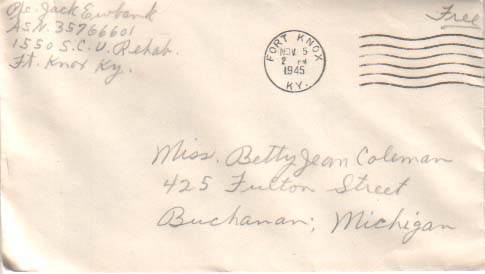 Pfc. Jack Ewbank
ASN. 35766601
1550 S.C.U. Rehab.
Ft. Knox Ky.
Free
FORT KNOX
NOV 5
2 PM
1945
KY.
Miss. Betty Jean Coleman
425 Fulton Street
Buchanan; Michigan